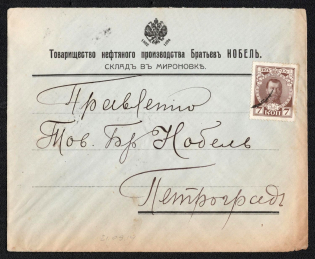 Товарищество нефтяного производства Братьевъ НОБЕЛЬ.
СКЛАДЪ ВЪ МИРОНОВКѢ.
7 КОП 7
Правленію
Тов. Бр Нобель
Петроградъ